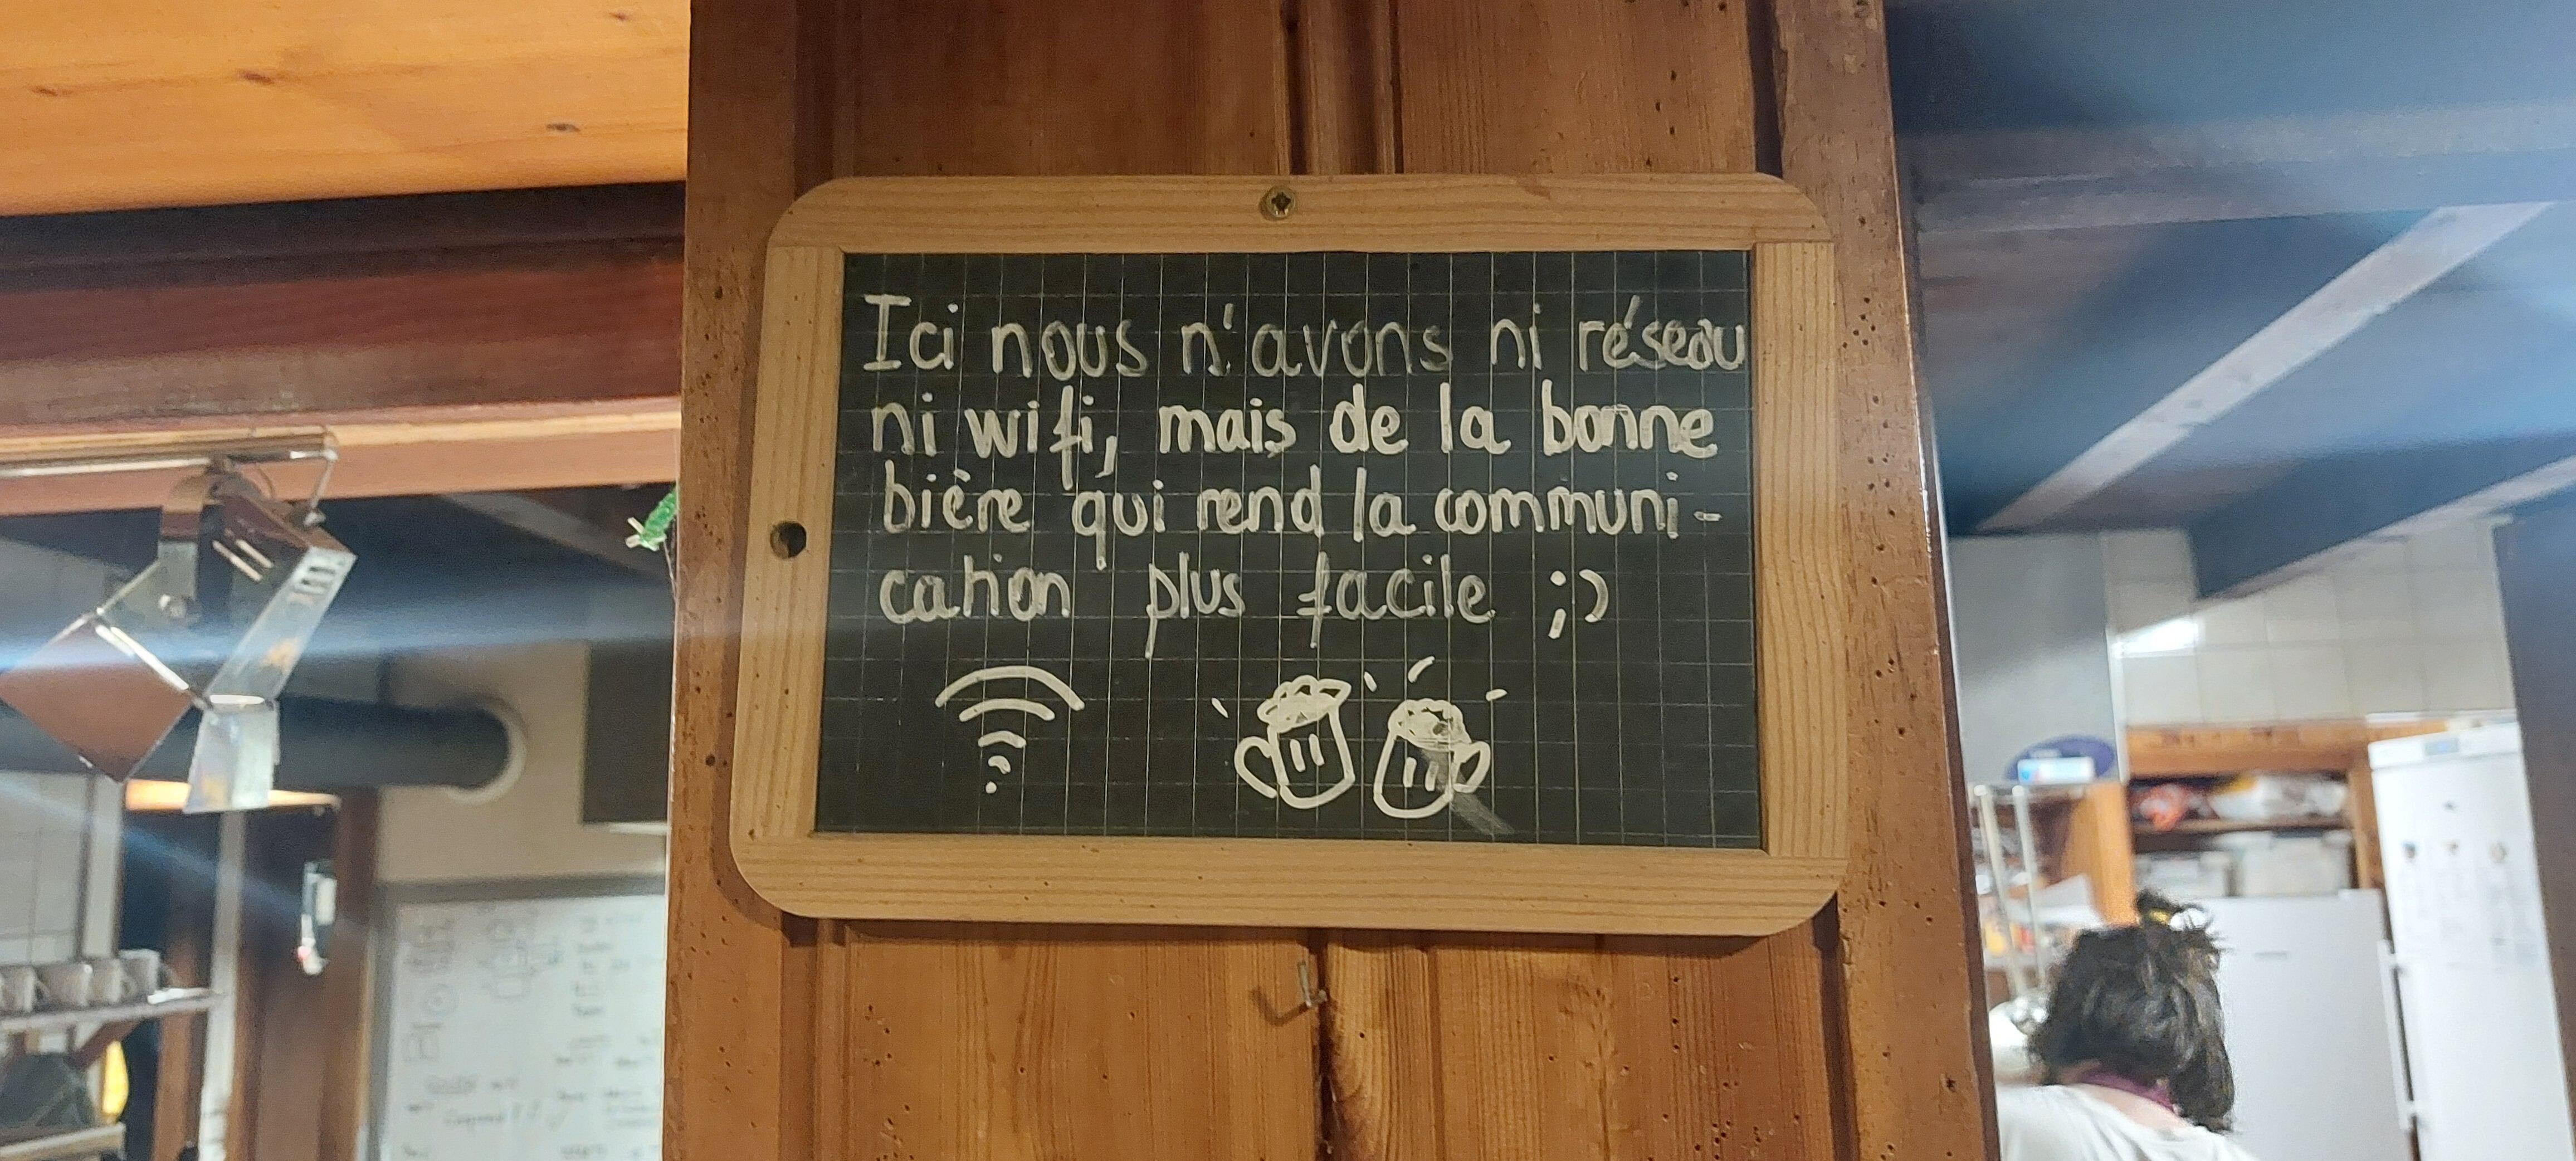 Ici nous n'avons ni réseau
ni wifi, mais de la bonne
bière qui rend la communi-
cation plus facile ;)